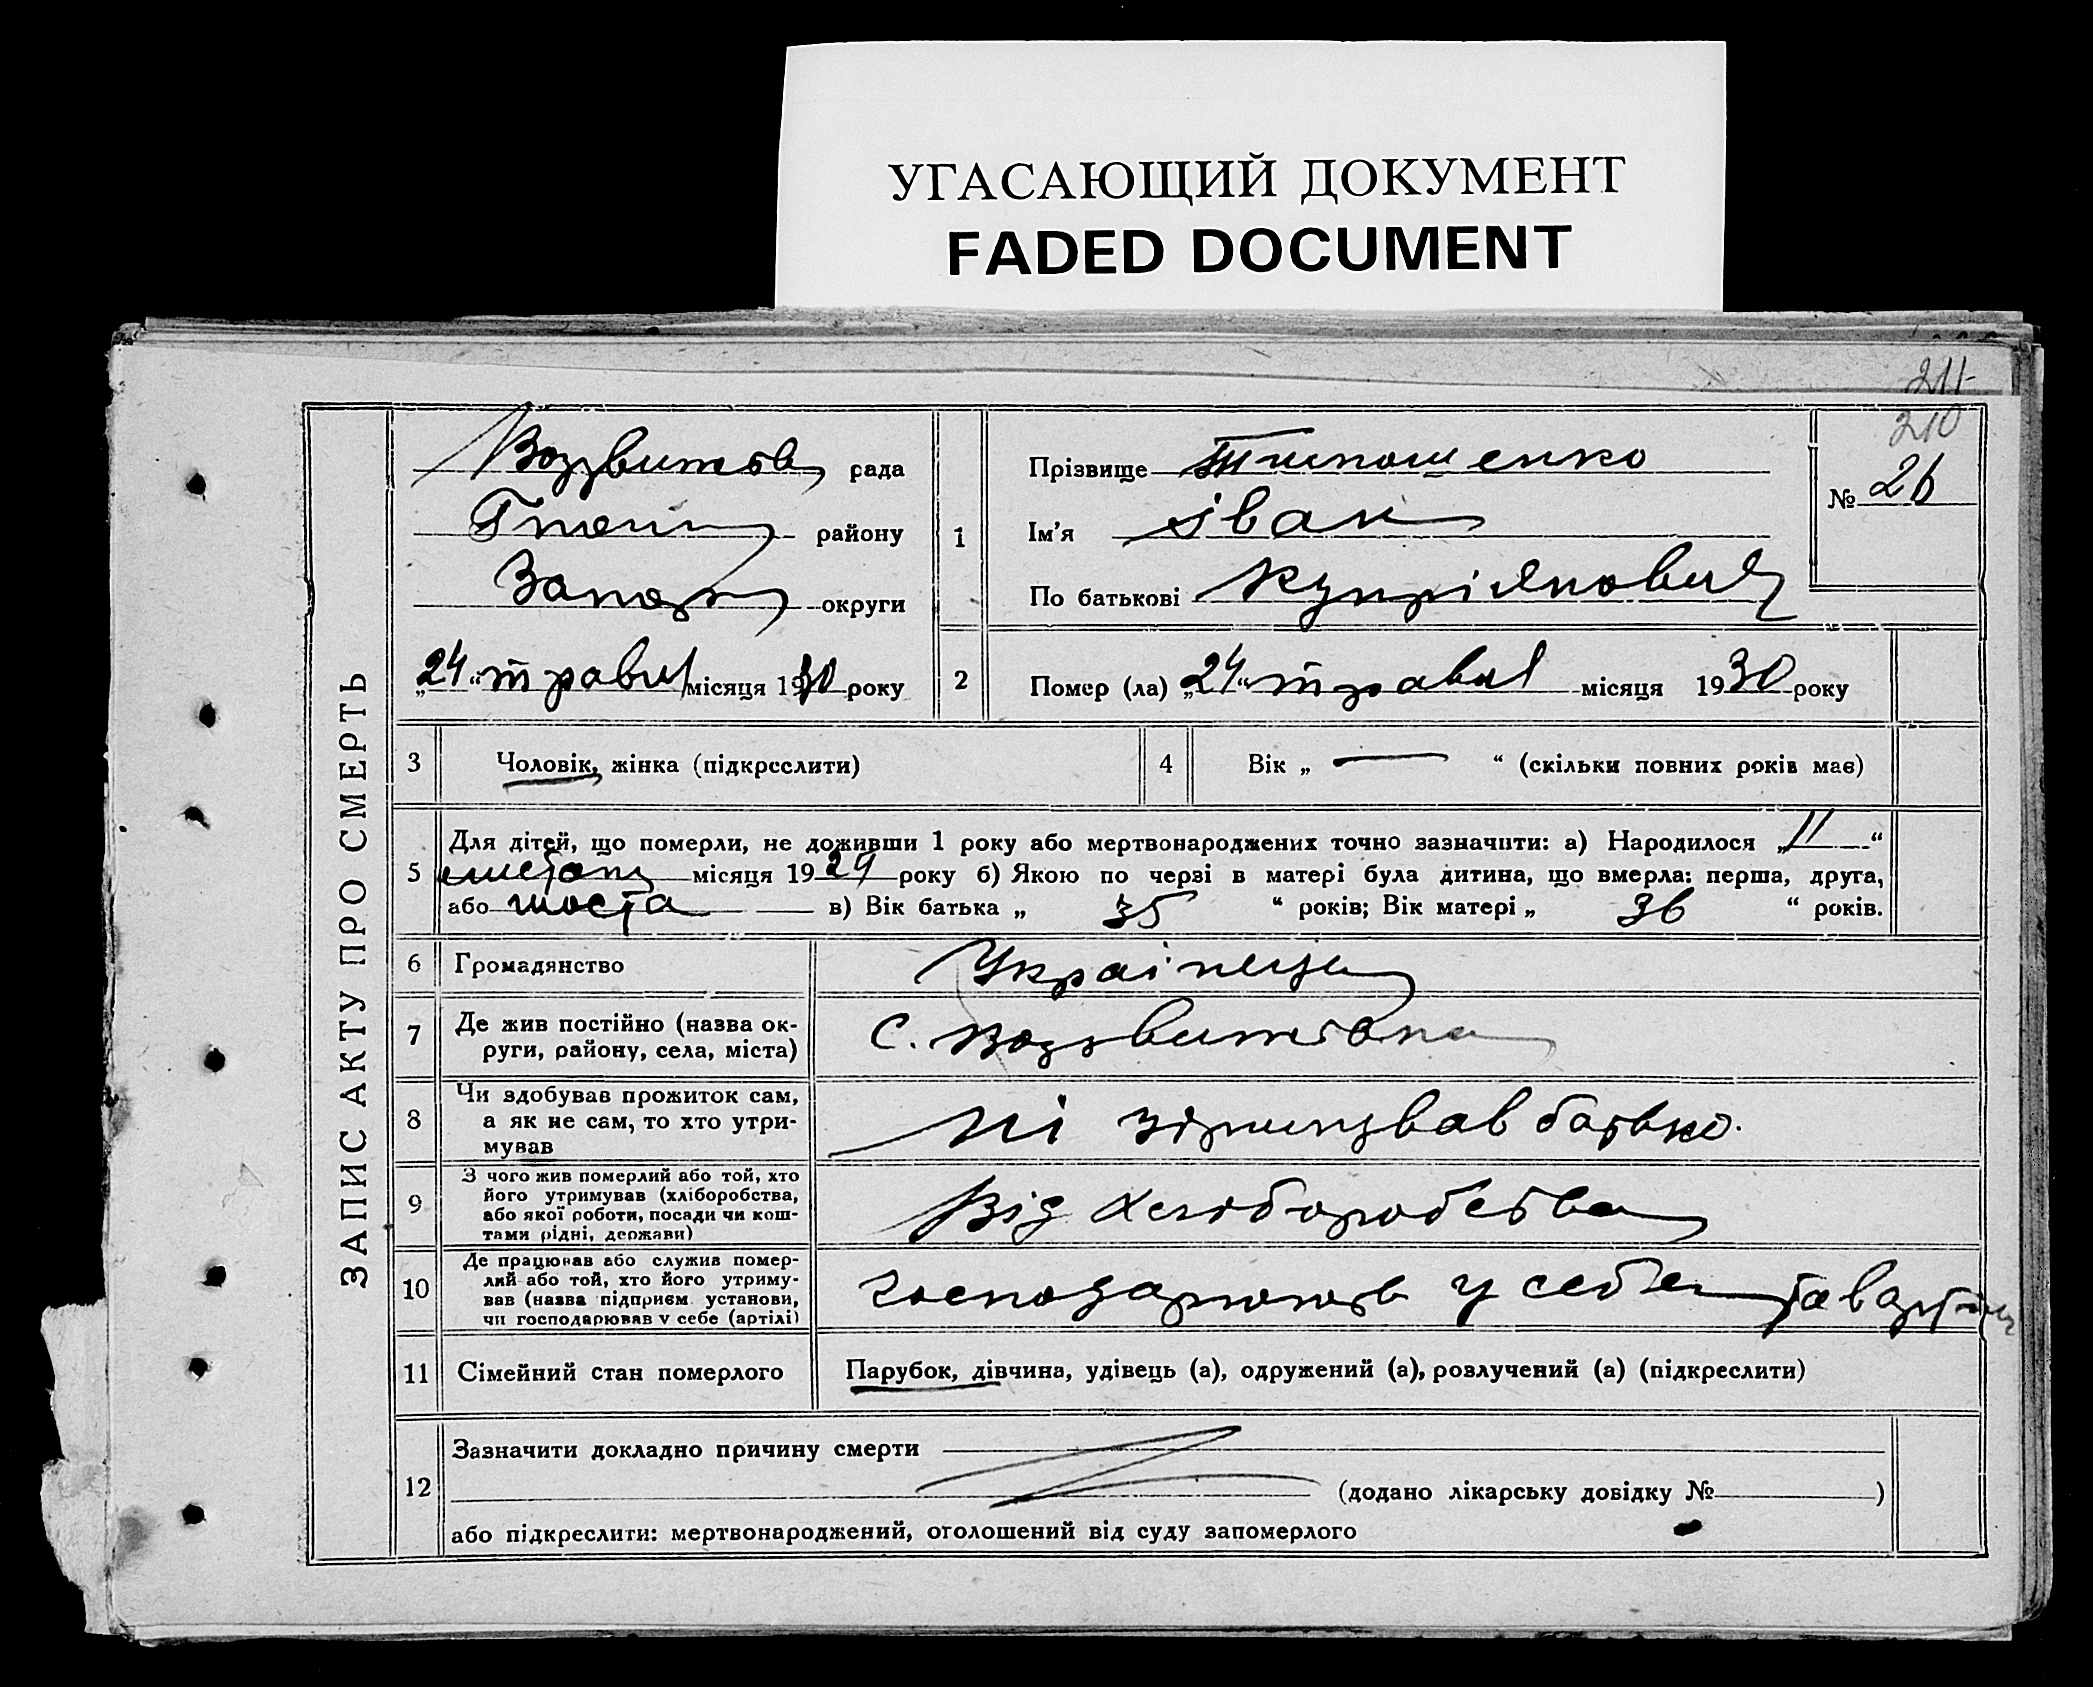 УГАСАЮЩИЙ ДОКУМЕНТ
FADED DOCUMENT
211
210
ЗАПИС АКТУ ПРО СМЕРТЬ
рада
району
округи
„24“ травня місяця 1930 року
1
Прізвище Тимошенко
Ім'я Іван
По батькові Купріянович
№ 26
2
Помер (ла) „24“ травня місяця 1930 року
3 Чоловік, жінка (підкреслити)
4 Вік „ — “ (скільки повних років має)
5 Для дітей, що померли, не доживши 1 року або мертвонароджених точно зазначити: а) Народилося „11“
листопад місяця 1929 року б) Якою по черзі в матері була дитина, що вмерла: перша, друга,
або шоста в) Вік батька „ 35 “ років; Вік матері „ 36 “ років.
6 Громадянство Украінець
7 Де жив постійно (назва ок-
руги, району, села, міста) С. Воздвитівка
8 Чи здобував прожиток сам,
а як не сам, то хто утри-
мував Ні батько.
9 З чого жив померлий або той, хто
його утримував (хліборобства,
або якої роботи, посади чи кош-
тами рідні, держави) Від хліборобства
10 Де працював або служив помер-
лий або той, хто його утриму-
вав (назва підприєм. установи,
чи господарював у себе (артілі) у себе та в артілі
11 Сімейний стан померлого Парубок, дівчина, удівець (а), одружений (а), розлучений (а) (підкреслити)
12 Зазначити докладно причину смерти
(додано лікарську довідку № )
або підкреслити: мертвонароджений, оголошений від суду запомерлого